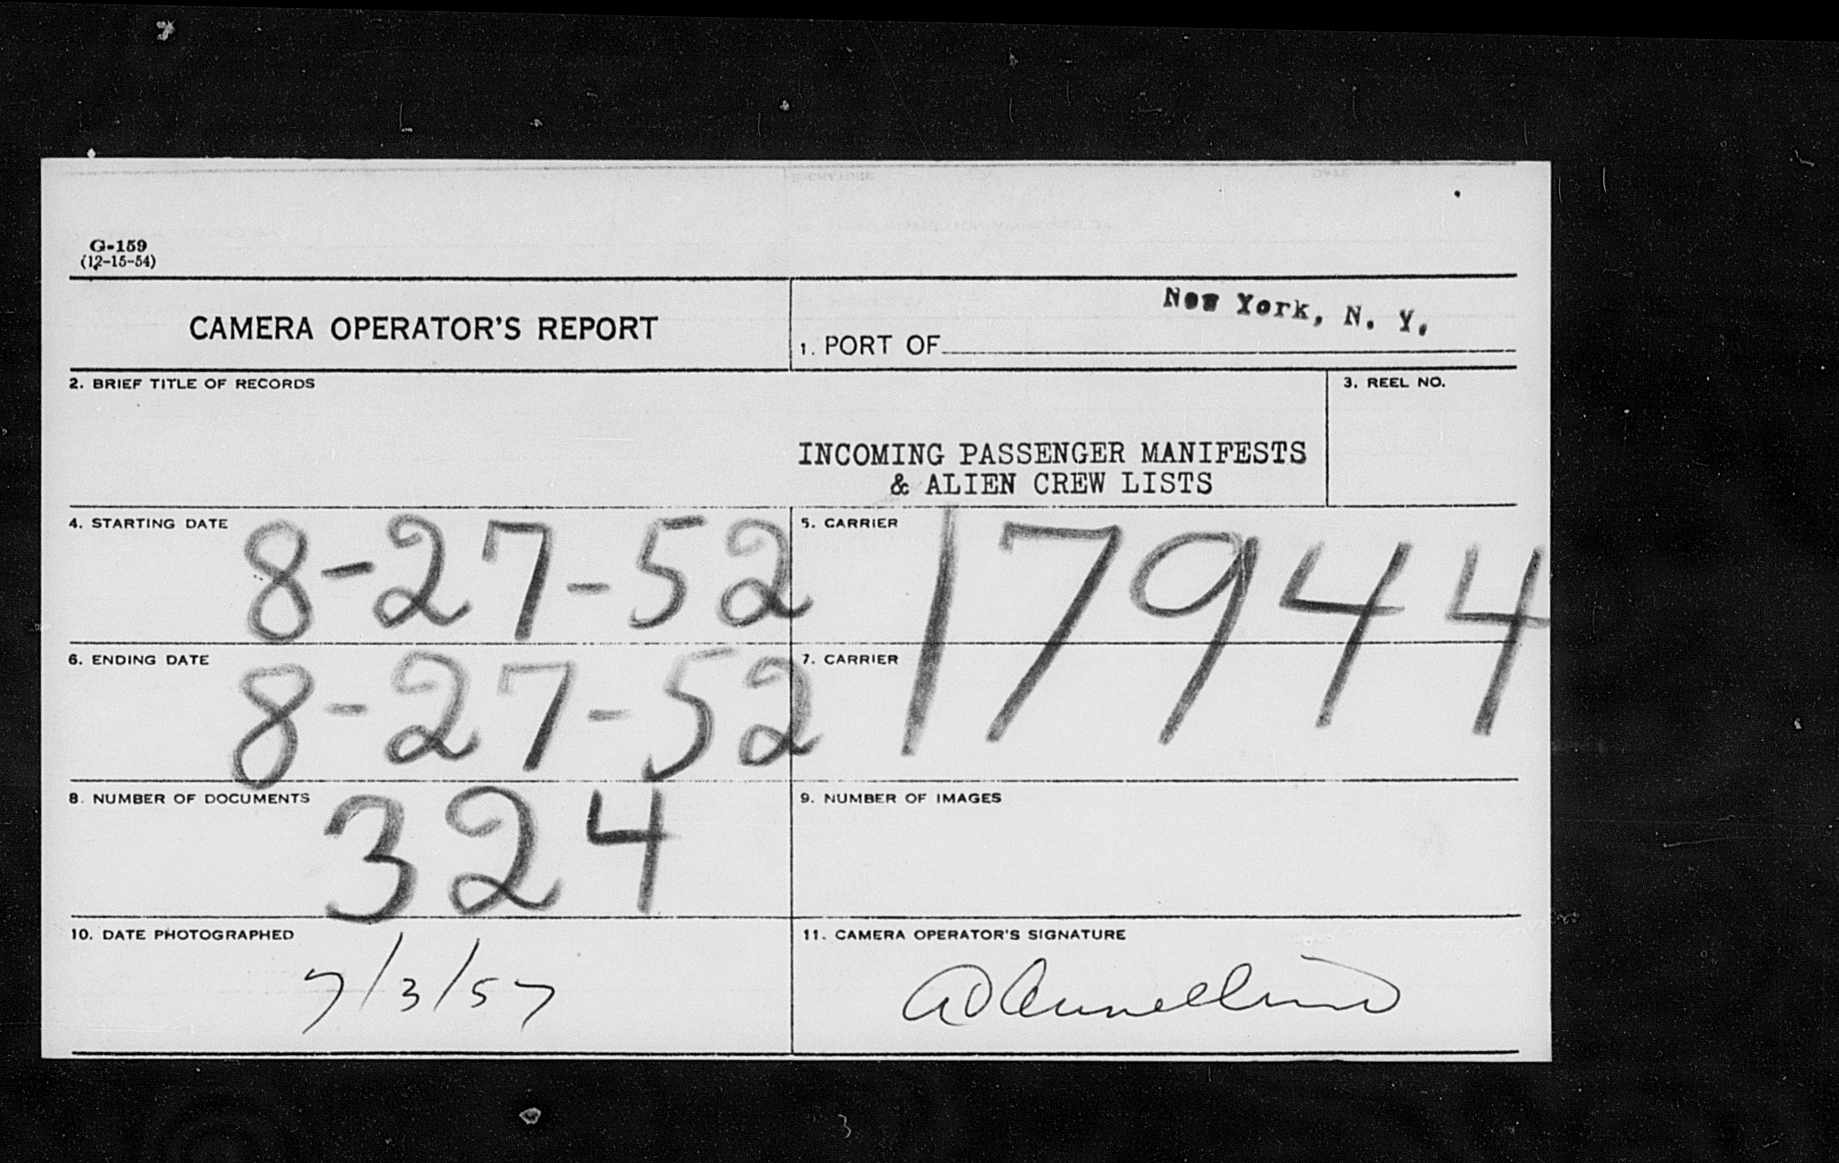 G-159
(12-15-54)
CAMERA OPERATOR'S REPORT
1. PORT OF New York, N. Y.
2. BRIEF TITLE OF RECORDS
INCOMING PASSENGER MANIFESTS
& ALIEN CREW LISTS
3. REEL NO.
4. STARTING DATE 8-27-52
5. CARRIER
17944
6. ENDING DATE 8-27-52
7. CARRIER
8. NUMBER OF DOCUMENTS 324
9. NUMBER OF IMAGES
10. DATE PHOTOGRAPHED
7/3/57
11. CAMERA OPERATOR'S SIGNATURE